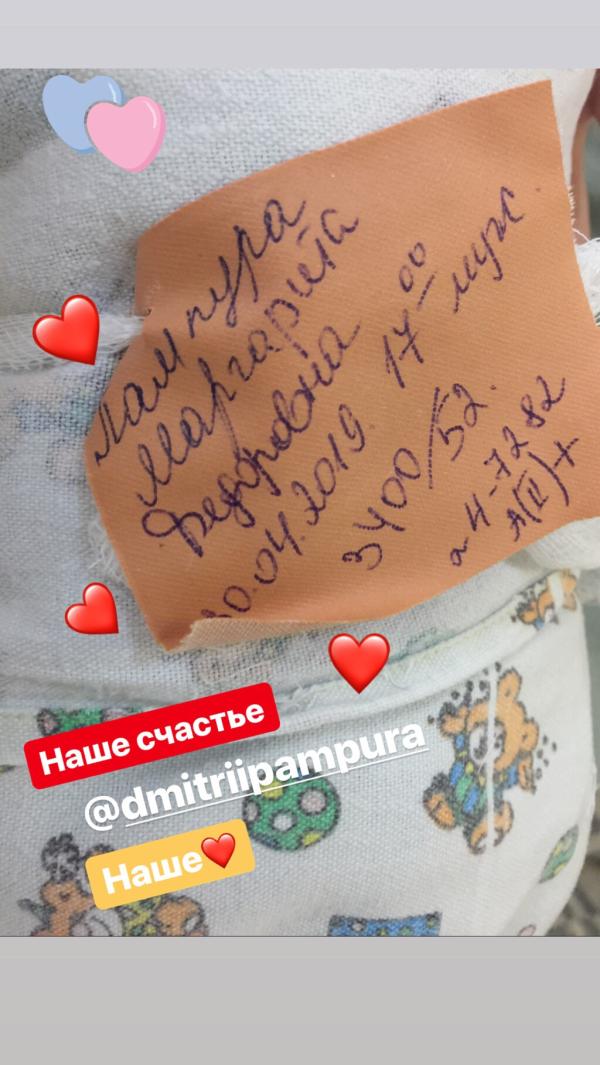 Пампура
Маргарита
Федоровна
30.04.2019 17-00 муж.
3400/52.
н-7282
A(II)+
Наше счастье
@dmitriipampura
Наше❤️